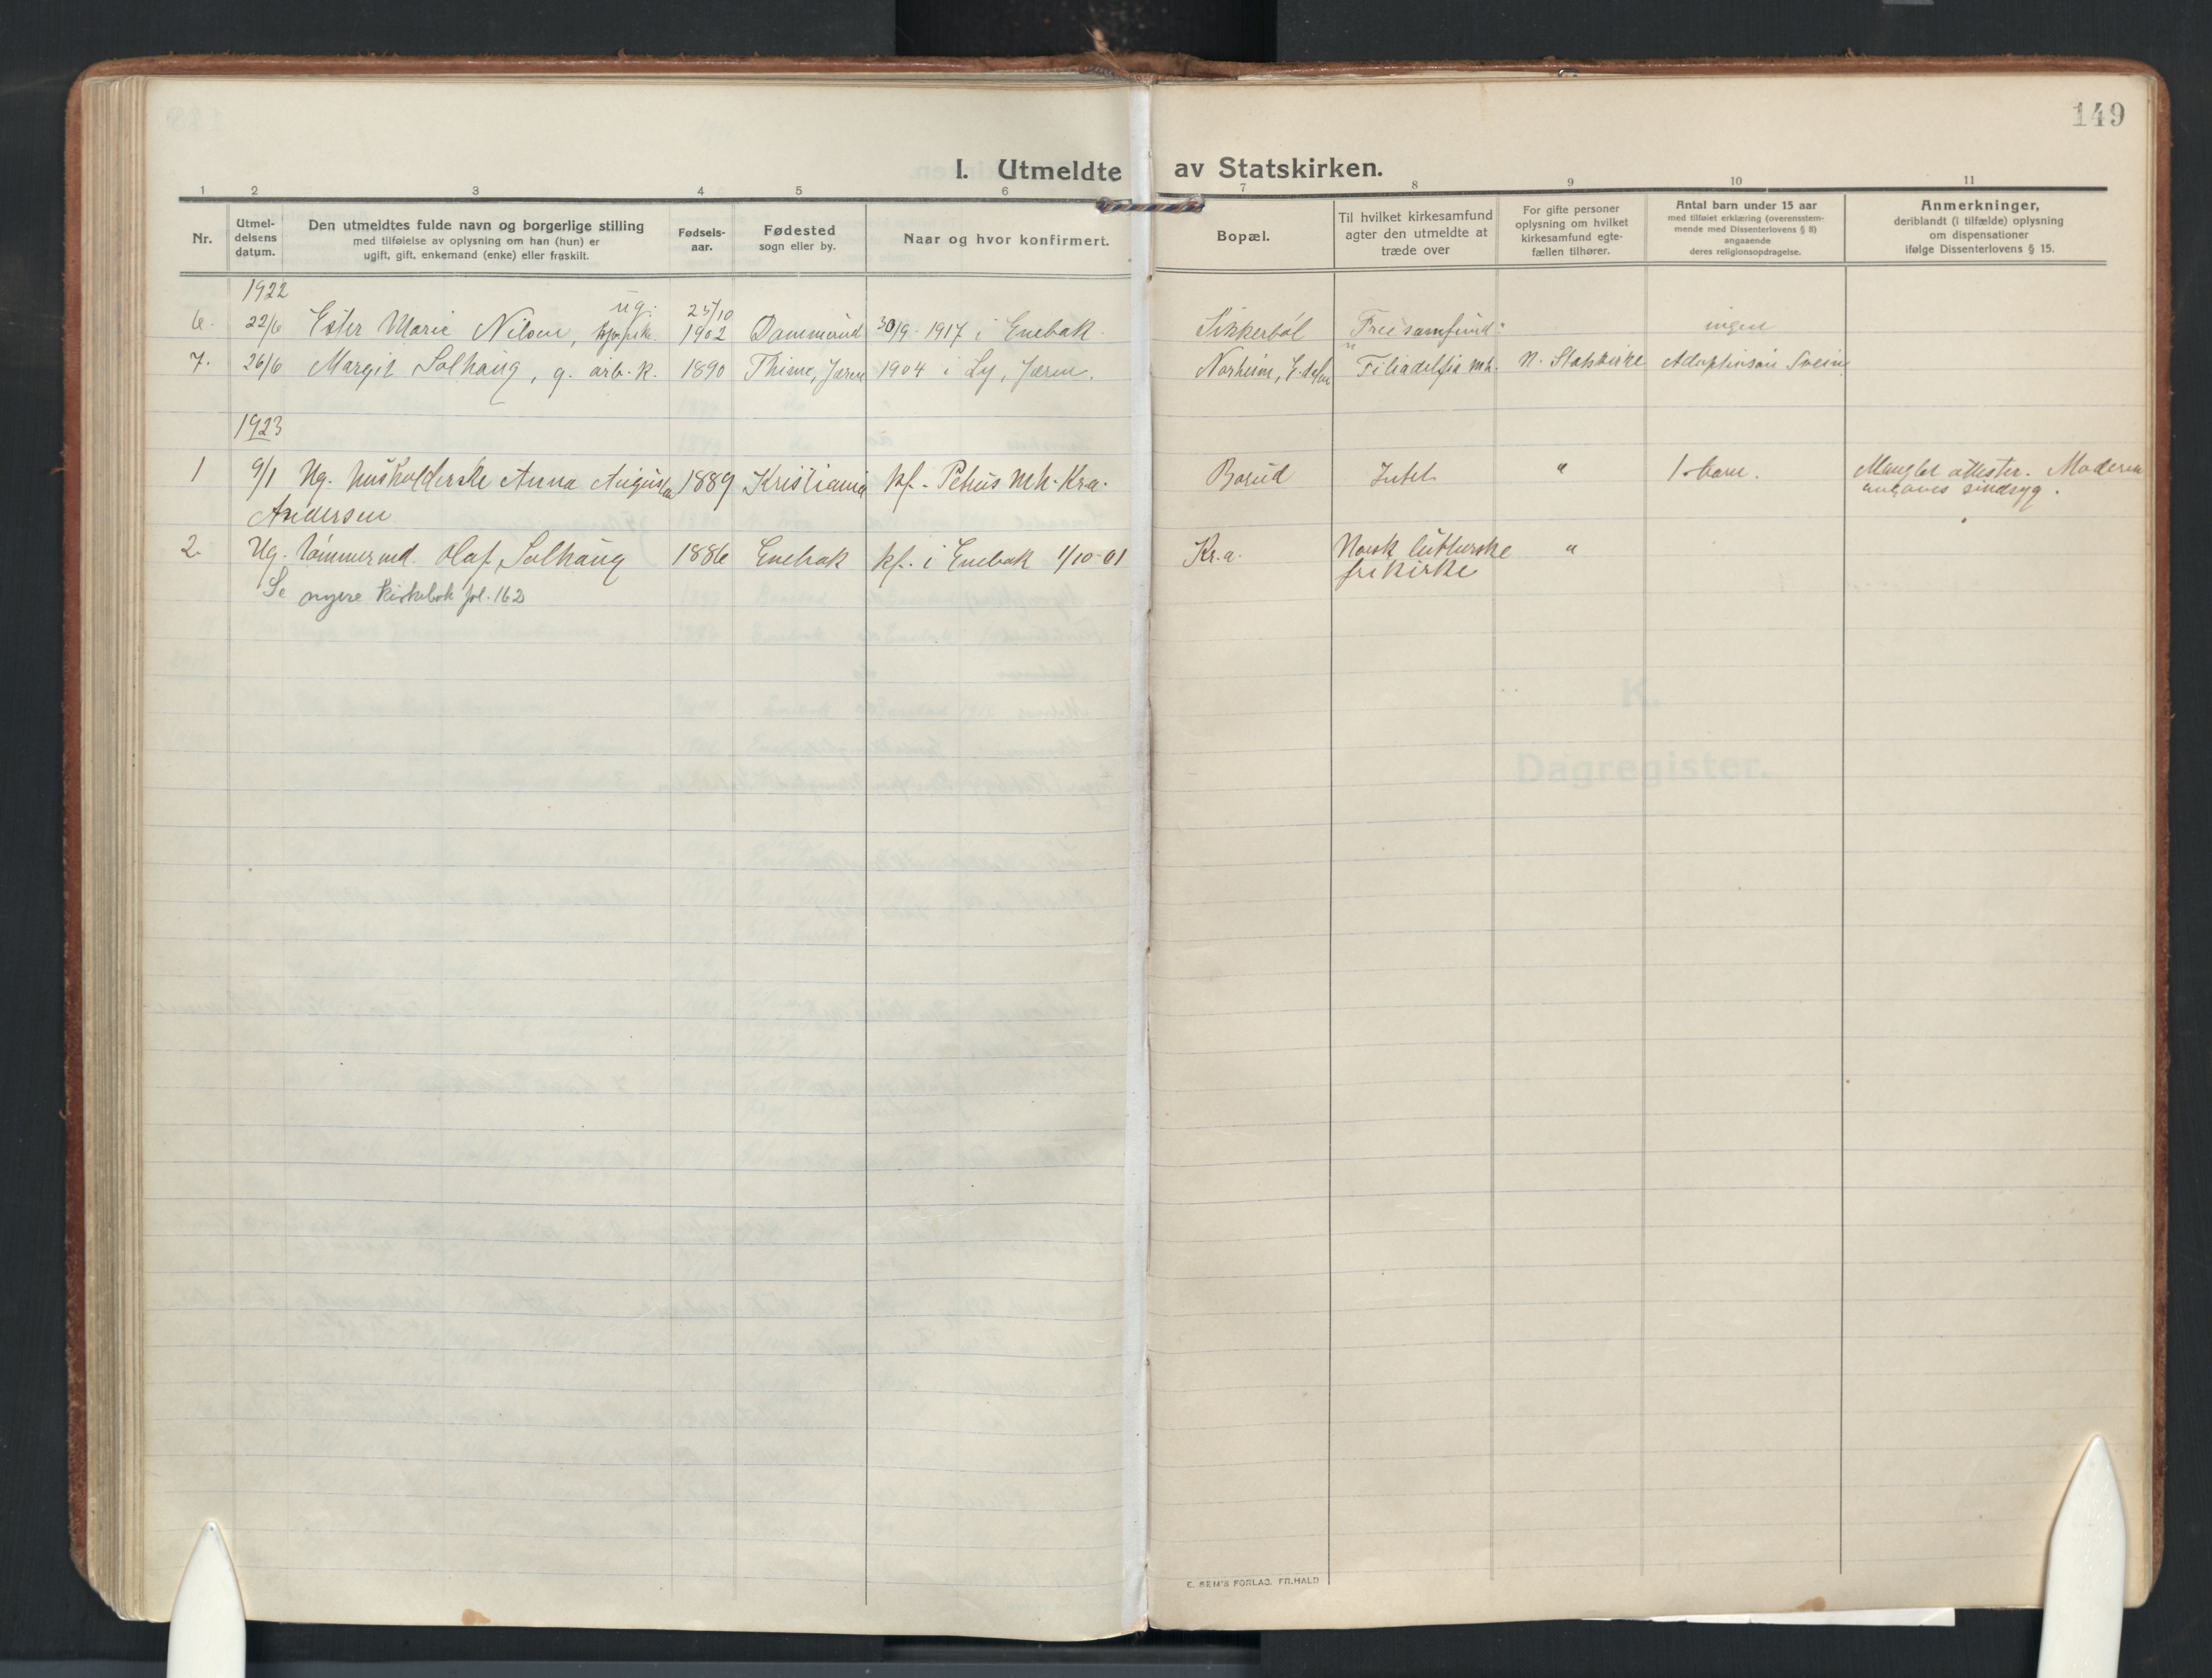 149
I. Utmeldte av Statskirken.
1 2 3 4 5 6 7 8 9 10 11
Nr.
Utmel-
delsens
datum.
Den utmeldtes fulde navn og borgerlige stilling
med tilføielse av oplysning om han (hun) er
ugift, gift, enkemand (enke) eller fraskilt.
Fødsels-
aar.
Fødested
sogn eller by.
Naar og hvor konfirmert.
Bopæl.
Til hvilket kirkesamfund
agter den utmeldte at
træde over
For gifte personer
oplysning om hvilket
kirkesamfund egte-
fællen tilhører.
Antal barn under 15 aar
med tilføiet erklæring (overensstem-
mende med Dissenterlovens § 8)
angaaende
deres religionsopdragelse.
Anmerkninger,
deriblandt (i tilfælde) oplysning
om dispensationer
ifølge Dissenterlovens § 15.
1922
ug. 25/10
6. 22/6 Ester Marie Nilsen, 1902 Dammerud 30/9 1917 i Enebak. Sikkerbøl Freesamfund: ingen
7. 26/6 Margit Solhaug, g. arb. k. 1890 Thime, Jæren 1904 i Ly, Jæren. Norheim, Filiadelfia mh. N. Statskirke Adoptivsøn Svein
1923
1 9/1 Ug. husholderske Anna Augusta 1889 Kristiania kf. Petrus Mh. Kr.a. Borud Intet " 1 barn. Mangler attester. Moderen
Andersen
angives sindsyg.
2. Ug. tømmermd. Olaf Solhaug 1886 Enebak kf. i Enebak 1/10-01 Kr.a. Norsk lutherske "
frikirke
Se nyere kirkebok fol. 162
K.
Dagregister.
E. SEM'S FORLAG. FR.HALD